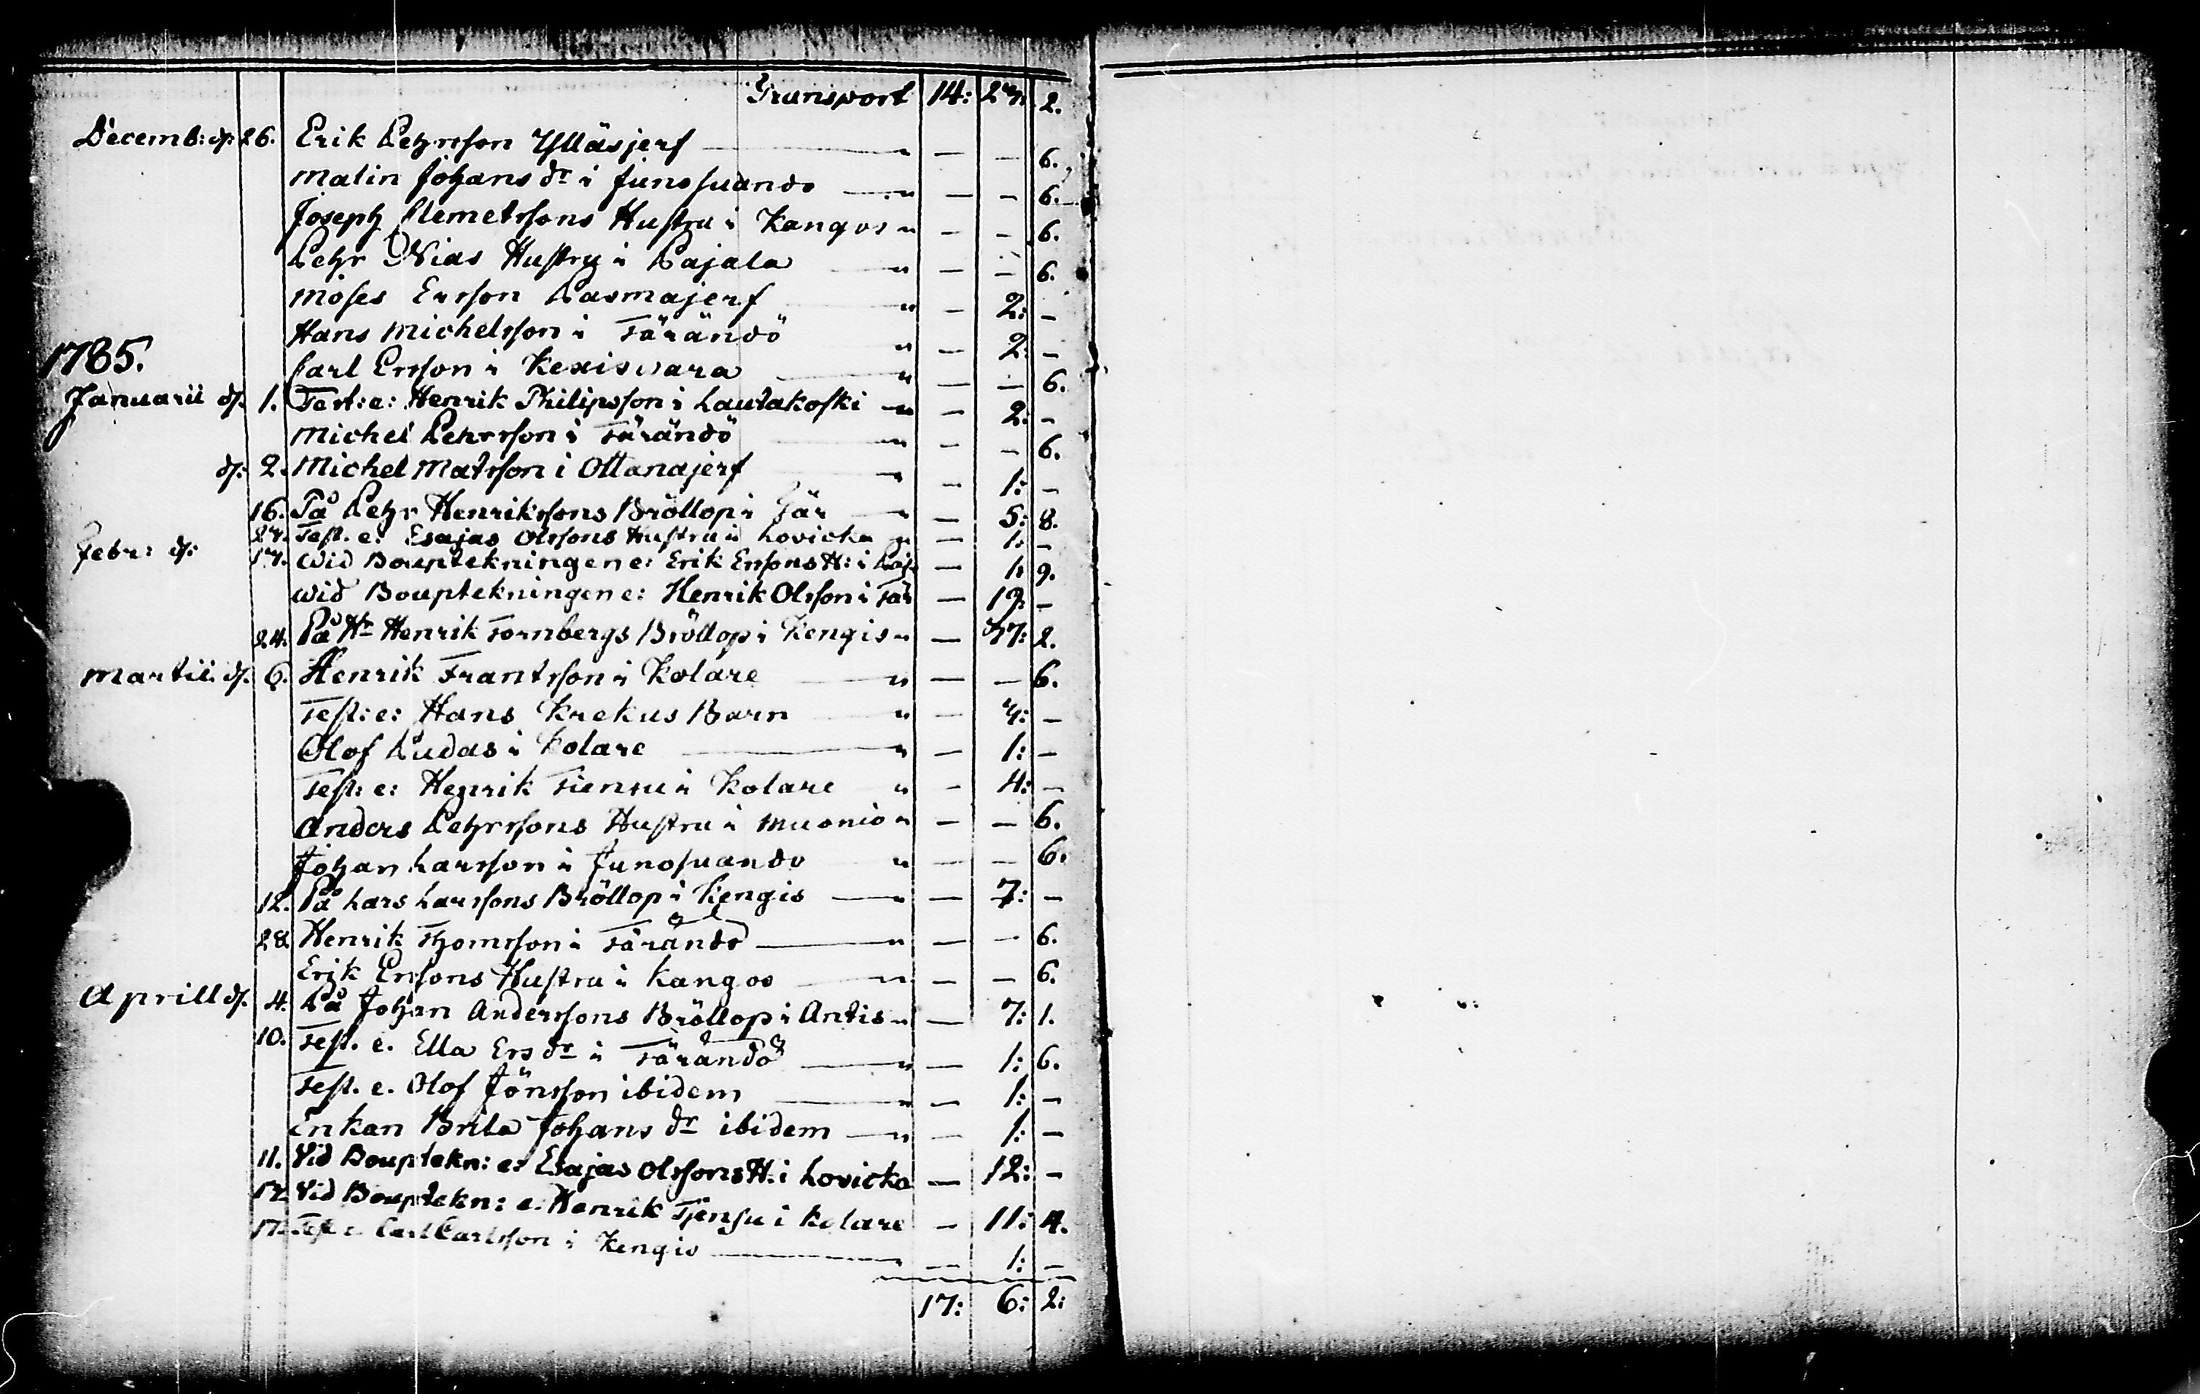 Transport 14: 27. 2.
Decemb: d: 26. Erik Pehrsson Ylläsjerf " — — 6.
Malin Johans dr i Junosuando " — — 6.
Joseph Clemetssons Hustru i Kangos " — — 6.
Pehr Nias Hustru i Pajala " — — 6.
Moses Ersson Pasmajerf " — 2: —
Hans Michelsson i Tärändö " — 2: —
1785.
Carl Ersson i Kexisvara " — — 6.
Januarii d. 1. Test: e: Henrik Philipsson i Lautakoski " — 2: —
Michel Pehrsson i Tärändö " — — 6.
d: 2. Michel Matsson i Ottanajerf " — 1: —
16. På Pehr Henrikssons Bröllop i Tär " — 5: 8.
27. Test. e: Esajas Olssons Hustru i Lovicka " — 1: —
Febr: d: 17. Wid Bouptekningen e: Erik Erssons H: i — 1: 9.
Wid Bouptekningen e: Henrik Olsson i Tär — —
24. På Hr Henrik Fornbergs Bröllop i Kengis " — 2.
Martii d. 6. Henrik Frantsson i Kolare " — — 6.
Test: e: Hans Krekus Barn " — —
Olof Ludas i Kolare " — 1: —
Test: e: Henrik Tiensu i Kolare " — 4: —
Anders Pehrssons Hustru i Muonio " — — 6.
Johan Larsson i Junosuando " — — 6.
12. På Lars Larssons Bröllop i Kengis " — 7: —
28. Henrik Thomsson i Tärändö " — — 6.
Erik Erssons Hustru i Kangos " — — 6.
Aprill d. 4. På Johan Anderssons Bröllop i Antis " — 7: 1.
10. Test. e. Ella Ers dr i Tärändö " — 1: 6.
Test. e. Olof Jönsson ibidem " — 1: —
Enkan Brita Johans dr ibidem " — 1: —
11. Vid Bouptekn: e: Esajas Olssons H. i Lovicka — 12: —
12. Vid Bouptekn: e. Henrik Tjensu i Kolare — 11: 4.
17. Test e. Carl Carlsson i Kengis — 1: —
17: 6: 2: